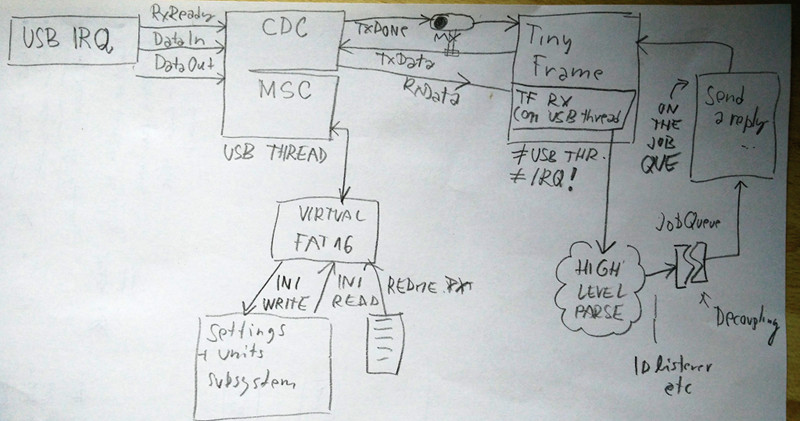 USB IRQ
RxReady
DataIn
DataOut
CDC
MSC
USB THREAD
TxDONE
MX
TxData
RxData
Tiny
Frame
TF RX
(on USB thread)
≠ USB THR.
≠ IRQ!
ON
THE
JOB
QUE
Send
a reply
...
JobQueue
Decoupling
HIGH
LEVEL
PARSE
ID listener
etc
VIRTUAL
FAT16
INI
WRITE
INI
READ
Settings
+ units
subsystem